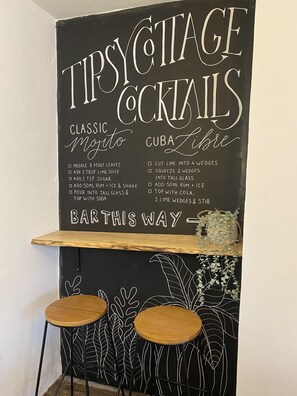 TIPSY COTTAGE
COCKTAILS
CLASSIC
Mojito
MUDDLE 8 MINT LEAVES
ADD 2 TBSP LIME JUICE
ADD 2 TSP SUGAR
ADD 50ML RUM + ICE & SHAKE
POUR INTO TALL GLASS &
TOP WITH SODA
CUBA Libre
CUT LIME INTO 4 WEDGES
SQUEEZE 2 WEDGES
INTO TALL GLASS
ADD 50ML RUM + ICE
TOP WITH COLA,
2 LIME WEDGES & STIR
BAR THIS WAY